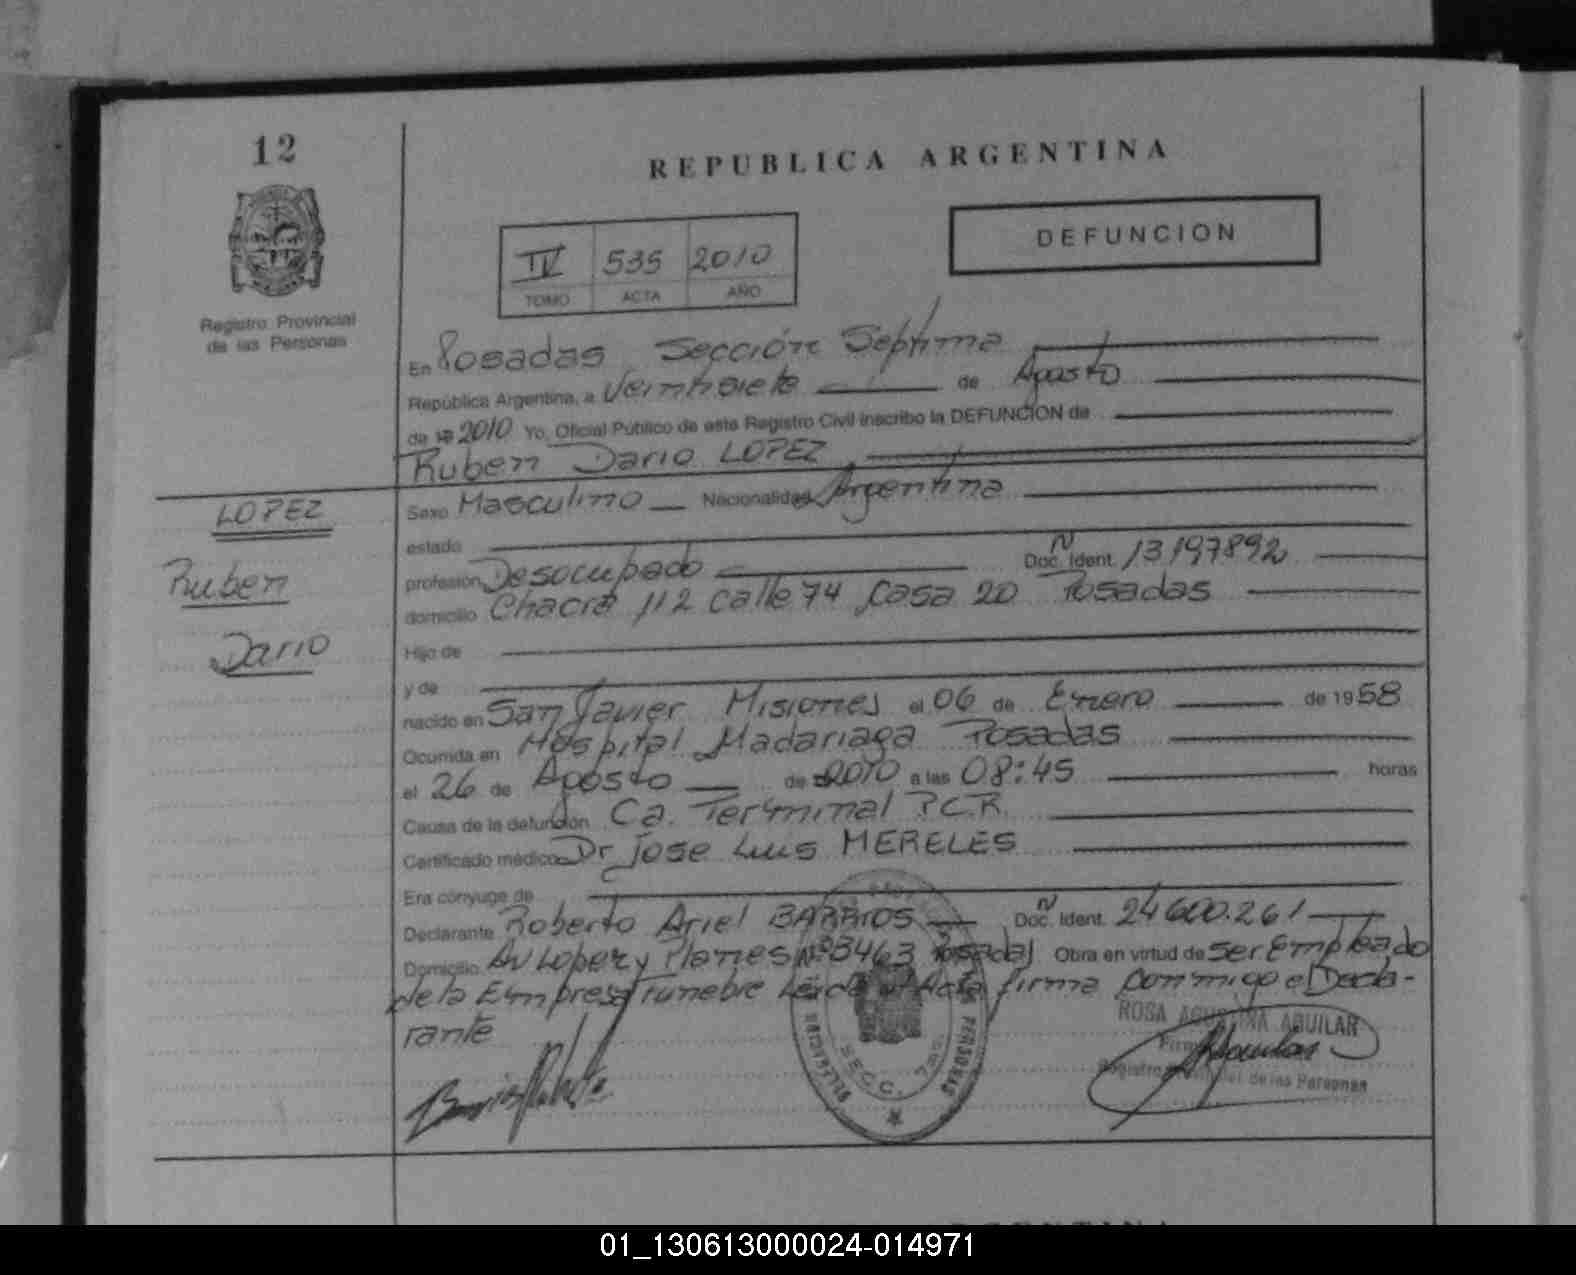 12
REPUBLICA ARGENTINA
Registro Provincial
de las Personas
IV 535 2010
TOMO ACTA AÑO
DEFUNCION
En Posadas Sección Séptima
República Argentina, a Veintisiete de Agosto
de 19 2010 Yo, Oficial Público de este Registro Civil inscribo la DEFUNCION de
Ruben Dario LOPEZ
LOPEZ
Ruben
Dario
Sexo Masculino Nacionalidad Argentina
estado
profesión Desocupado Doc. Ident. N 13197892
domicilio Chacra 112 calle 74 casa 20 Posadas
Hijo de
y de
nacido en San Javier Misiones el 06 de Enero de 1958
Ocurrida en Hospital Madariaga Posadas
el 26 de Agosto de 2010 a las 08:45 horas
Causa de la defunción Ca. Terminal P.C.R.
Certificado médico Dr Jose Luis MERELES
Era cónyuge de
Declarante Roberto Ariel BARRIOS Doc. Ident. N 24600.261
Domicilio Av Lopez y Planes Nº 3463 Posadas Obra en virtud de Ser Empleado
de la Empresa Funebre Leida el Acta firma conmigo el Decla-
rante
SECC. 7ma.
ROSA AGUSTINA AGUILAR
Registro Provincial de las Personas
01_130613000024-014971